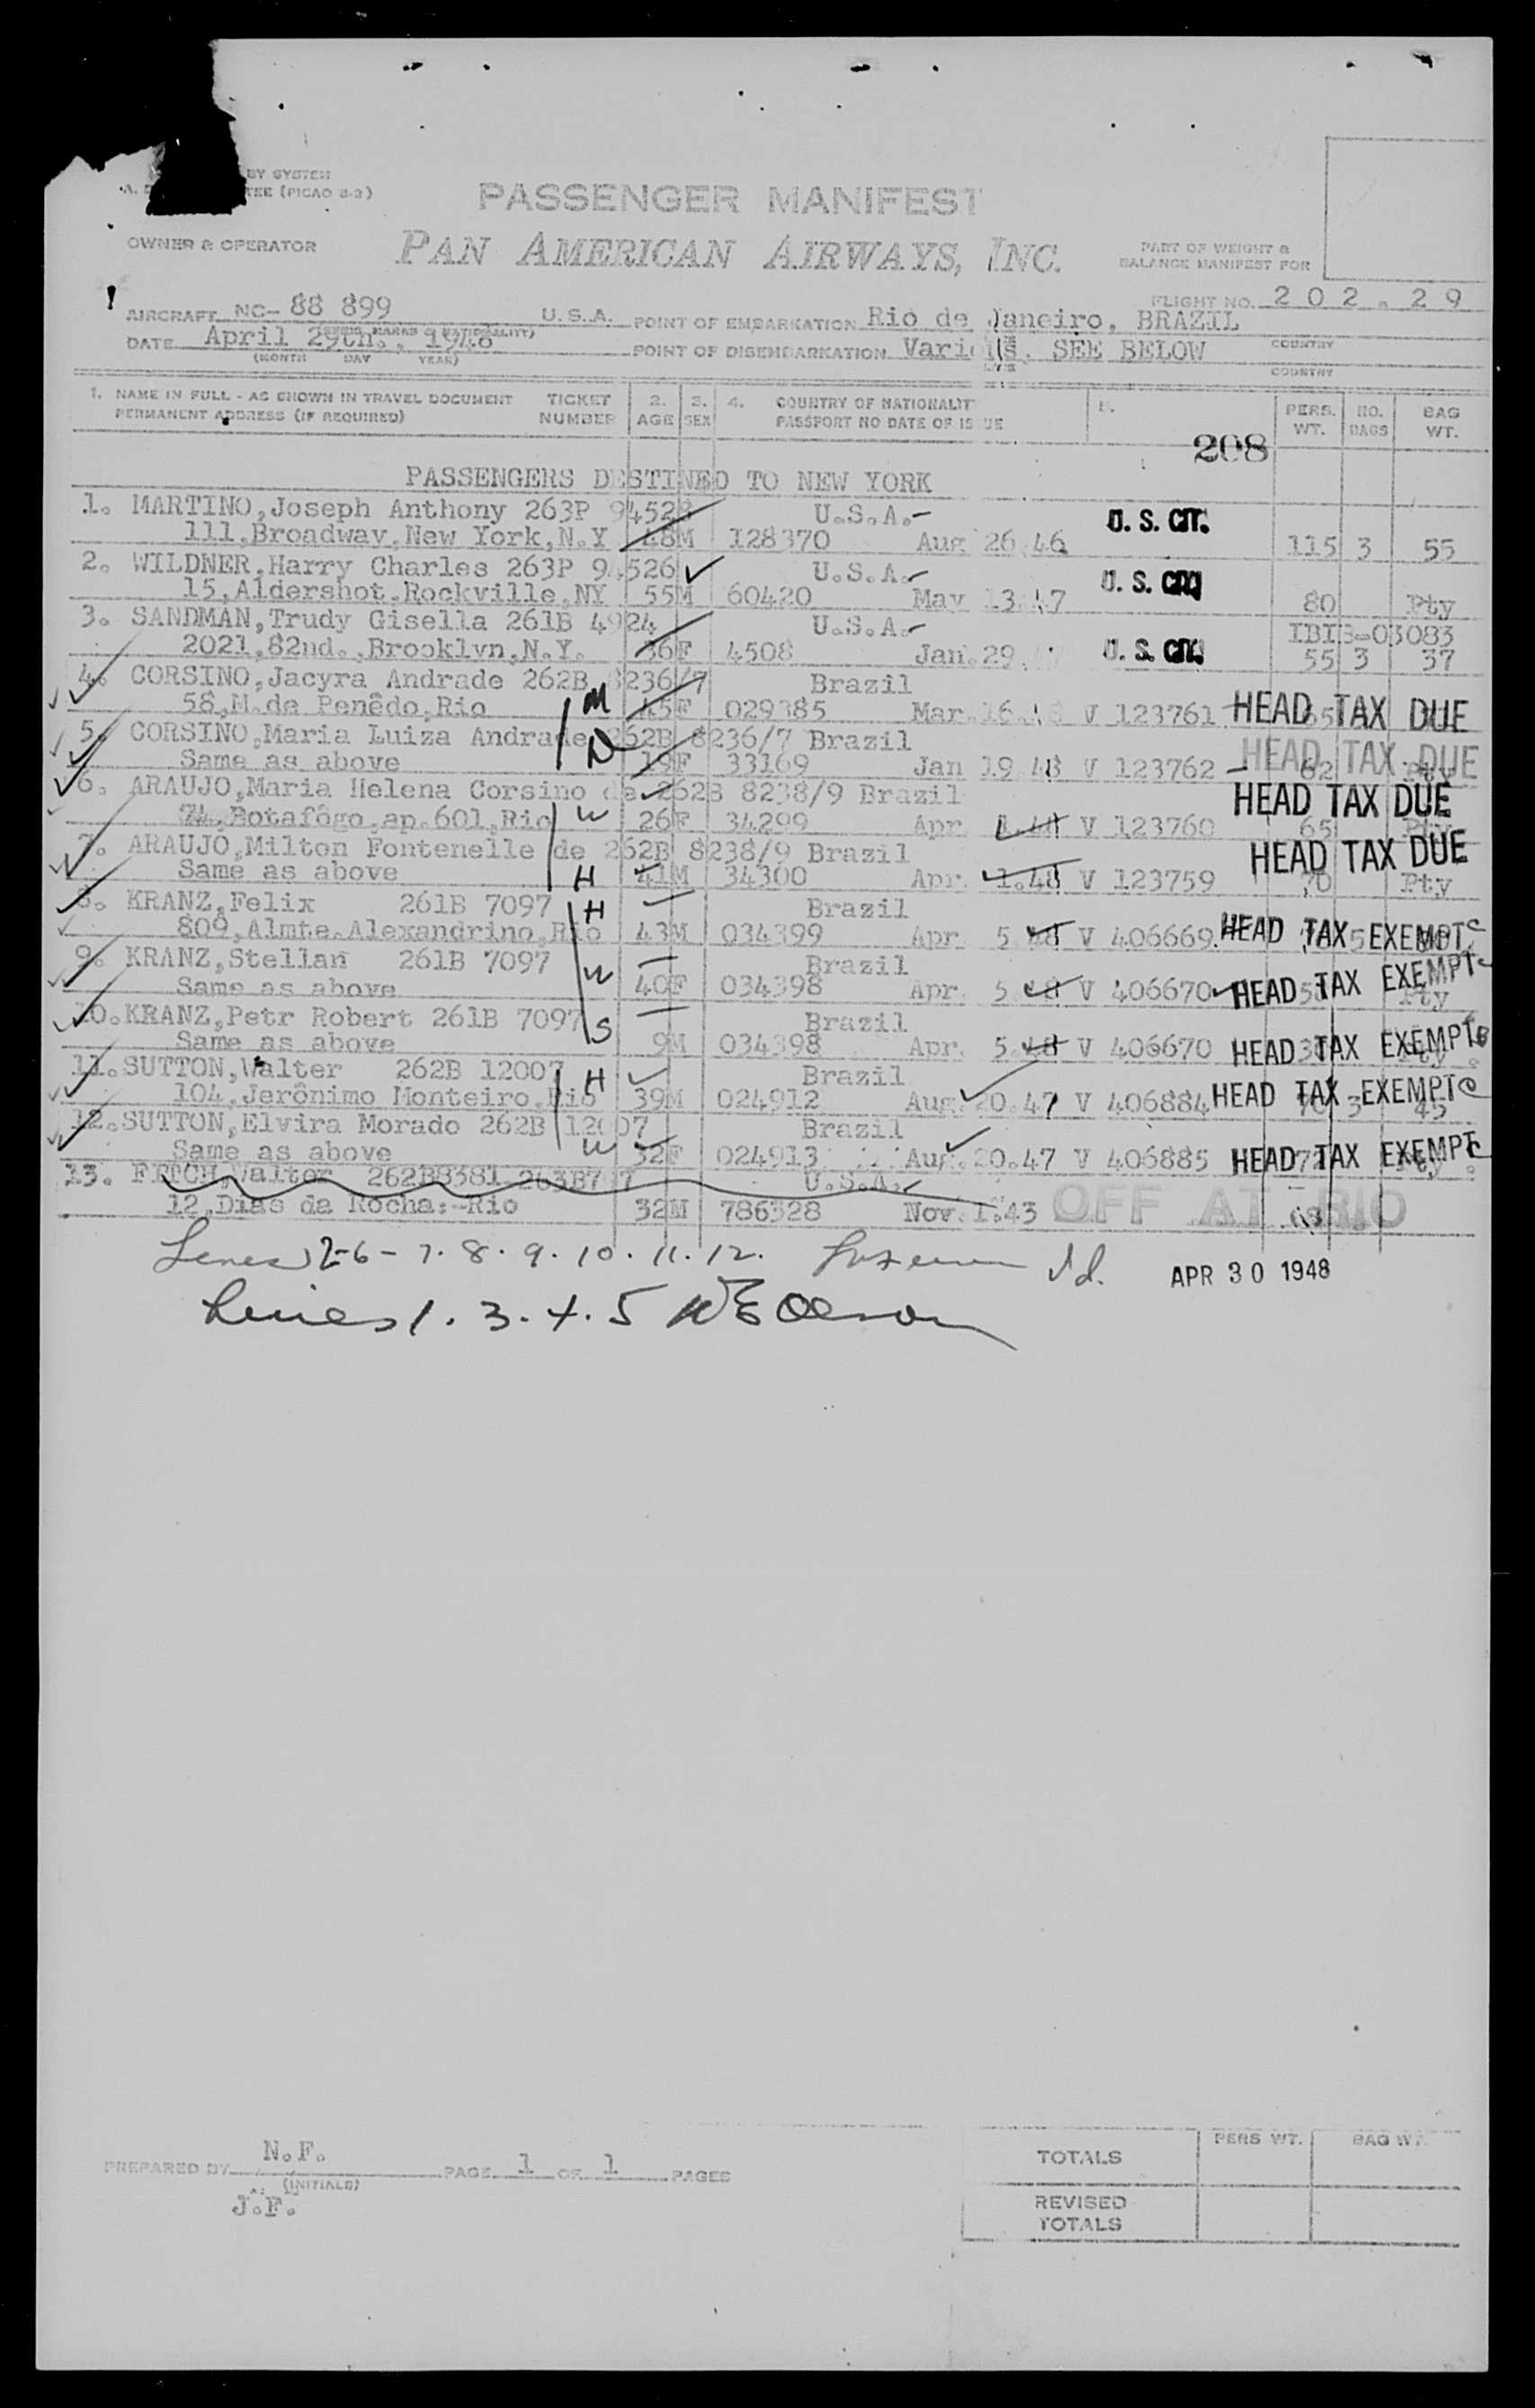 BY SYSTEM
TEE (PICAO 2-2)
PASSENGER MANIFEST
OWNER & OPERATOR PAN AMERICAN AIRWAYS, INC. PART OF WEIGHT &
BALANCE MANIFEST FOR
FLIGHT NO. 202.29
AIRCRAFT NC- 88 899 U.S.A. POINT OF EMBARKATION Rio de Janeiro, BRAZIL
DATE April 29th., 1948 POINT OF DISEMBARKATION Various, SEE BELOW COUNTRY
(MONTH DAY YEAR) COUNTRY
1. NAME IN FULL - AS SHOWN IN TRAVEL DOCUMENT TICKET 2. 3. 4. COUNTRY OF NATIONALITY 5. PERS. NO. BAG
PERMANENT ADDRESS (IF REQUIRED) NUMBER AGE SEX PASSPORT NO DATE OF ISSUE WT. BAGS WT.
208
PASSENGERS DESTINED TO NEW YORK
1. MARTINO, Joseph Anthony 263P 94528 U.S.A. U. S. CIT.
111, Broadway, New York, N.Y 48 M 128370 Aug 26 46 115 3 55
2. WILDNER, Harry Charles 263P 94526 U.S.A. U. S. CIT.
15, Aldershot, Rockville, NY 55 M 60420 May 13 47 80 Pty
3. SANDMAN, Trudy Gisella 261B 4924 U.S.A. IBIS-03083
2021, 82nd., Brooklyn, N.Y. 36 F 4508 Jan. 29 U. S. CIT. 55 3 37
4. CORSINO, Jacyra Andrade 262B 8236/7 Brazil
58, M. de Penêdo, Rio M 45 F 029385 Mar. 16 48 V 123761 HEAD TAX DUE
5. CORSINO, Maria Luiza Andrade 262B 8236/7 Brazil
Same as above D 19 F 33169 Jan 19 48 V 123762 62 HEAD TAX DUE Pty
6. ARAUJO, Maria Helena Corsino de 262B 8238/9 Brazil HEAD TAX DUE
74, Botafôgo, ap. 601, Rio W 26 F 34299 Apr. 1.48 V 123760 65 Pty
7. ARAUJO, Milton Fontenelle de 262B 8238/9 Brazil HEAD TAX DUE
Same as above H 41 M 34300 Apr. 1.48 V 123759 70 Pty
8. KRANZ, Felix 261B 7097 H Brazil
809, Almte. Alexandrino, Rio 43 M 034399 Apr. 5 48 V 406669 HEAD TAX EXEMPT
9. KRANZ, Stellan 261B 7097 W Brazil
Same as above 40 F 034398 Apr. 5 48 V 406670 HEAD TAX EXEMPT Pty
10. KRANZ, Petr Robert 261B 7097 S Brazil
Same as above 9 M 034398 Apr. 5 48 V 406670 HEAD TAX EXEMPT
11. SUTTON, Walter 262B 12007 H Brazil
104, Jerônimo Monteiro, Rio 39 M 024912 Aug. 20.47 V 406884 HEAD TAX EXEMPT 70 3 45
12. SUTTON, Elvira Morado 262B 12007 Brazil
Same as above W 32 F 024913 Aug. 20.47 V 406885 HEAD TAX EXEMPT
13. FETCH, Walter 262B8381 U.S.A.
12, Dias da Rocha:-Rio 32 M 786328 Nov. 1.43 OFF AT RIO
Lines 2-6-7.8.9.10.11.12. APR 30 1948
Lines 1.3.4.5 WE Olson
PREPARED BY N.F. PAGE 1 OF 1 PAGES
(INITIALS)
J.F.
PERS WT. BAG WT.
TOTALS
REVISED
TOTALS